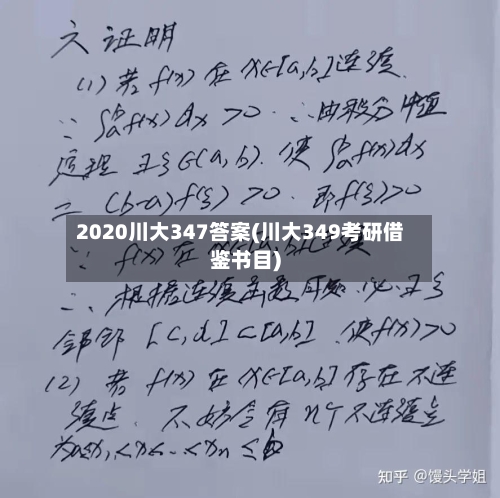 六 证明
(1) 若 f(x) 在 x∈[a,b]连续.
∵ ∫ₐᵇf(x)dx >0 ∴由积分中值
定理 ∃ξ∈(a,b). 使 ∫ₐᵇf(x)dx
= (b-a)f(ξ) >0. 即f(ξ)>0
2020川大347答案(川大349考研借
鉴书目)
∵ f(x) 在
∴ 根据连续函数可知. 必∃ξ
邻部 [c,d]⊂[a,b] 使f(x)>0
(2) 若 f(x) 在 x∈[a,b]存在不连
续点. 不妨令有 n个不连续点
知乎 @馒头学姐